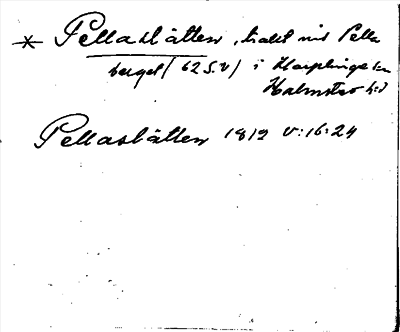 * Pellaslätten, trakt vid Pella
berget (62 S.V) i Harplinge sn
Halmstad hd
Pellaslätten 1812 V:16:24